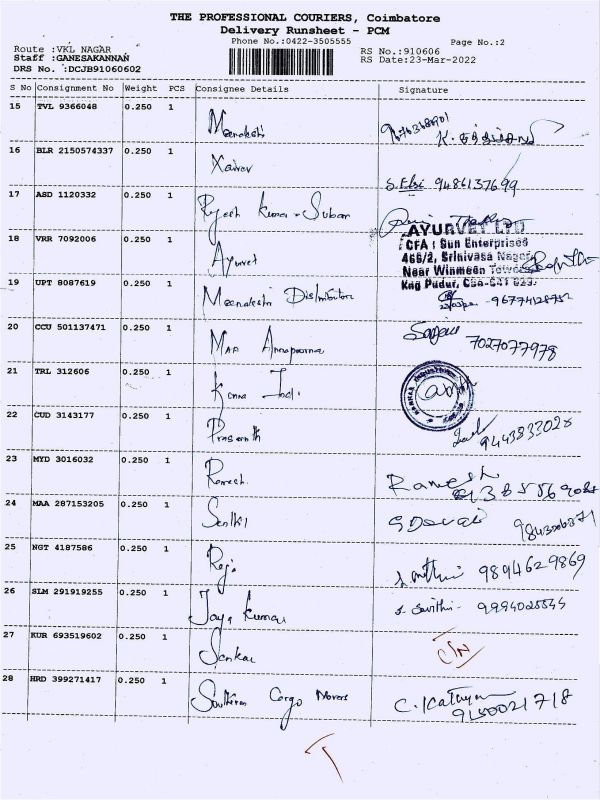 THE PROFESSIONAL COURIERS, Coimbatore
Delivery Runsheet - PCM
Phone No.:0422-3505555 Page No.:2
Route :VKL NAGAR RS No.:910606
Staff :GANESAKANNAN RS Date:23-Mar-2022
DRS No. :DCJB91060602
S No Consignment No Weight PCS Consignee Details Signature
15 TVL 9366048 0.250 1 Meenakshi
16 BLR 2150574337 0.250 1 Xavier
S. Elsi 9486137699
17 ASD 1120332 0.250 1 Rajesh Kumar
18 VRR 7092006 0.250 1 Ayurvet
AYURVET LTD
CFA : Sun Enterprises
466/2, Srinivasa Nagar,
Near Winmeen Towers
Kng Pudur, CBE-641
19 UPT 8087619 0.250 1 Meenakshi Distributor
9677412875
20 CCU 501137471 0.250 1 Maa Annapoorna
7027077978
21 TRL 312606 0.250 1
22 CUD 3143177 0.250 1 Prasanth
23 MYD 3016032 0.250 1 Ramesh
Ramesh
24 MAA 287153205 0.250 1 Senthil
25 NGT 4187586 0.250 1 Raja
9894629869
26 SLM 291919255 0.250 1 Jaya Kumar
27 KUR 693519602 0.250 1 Sankar
28 HRD 399271417 0.250 1 Southern Cargo Movers
9150021718